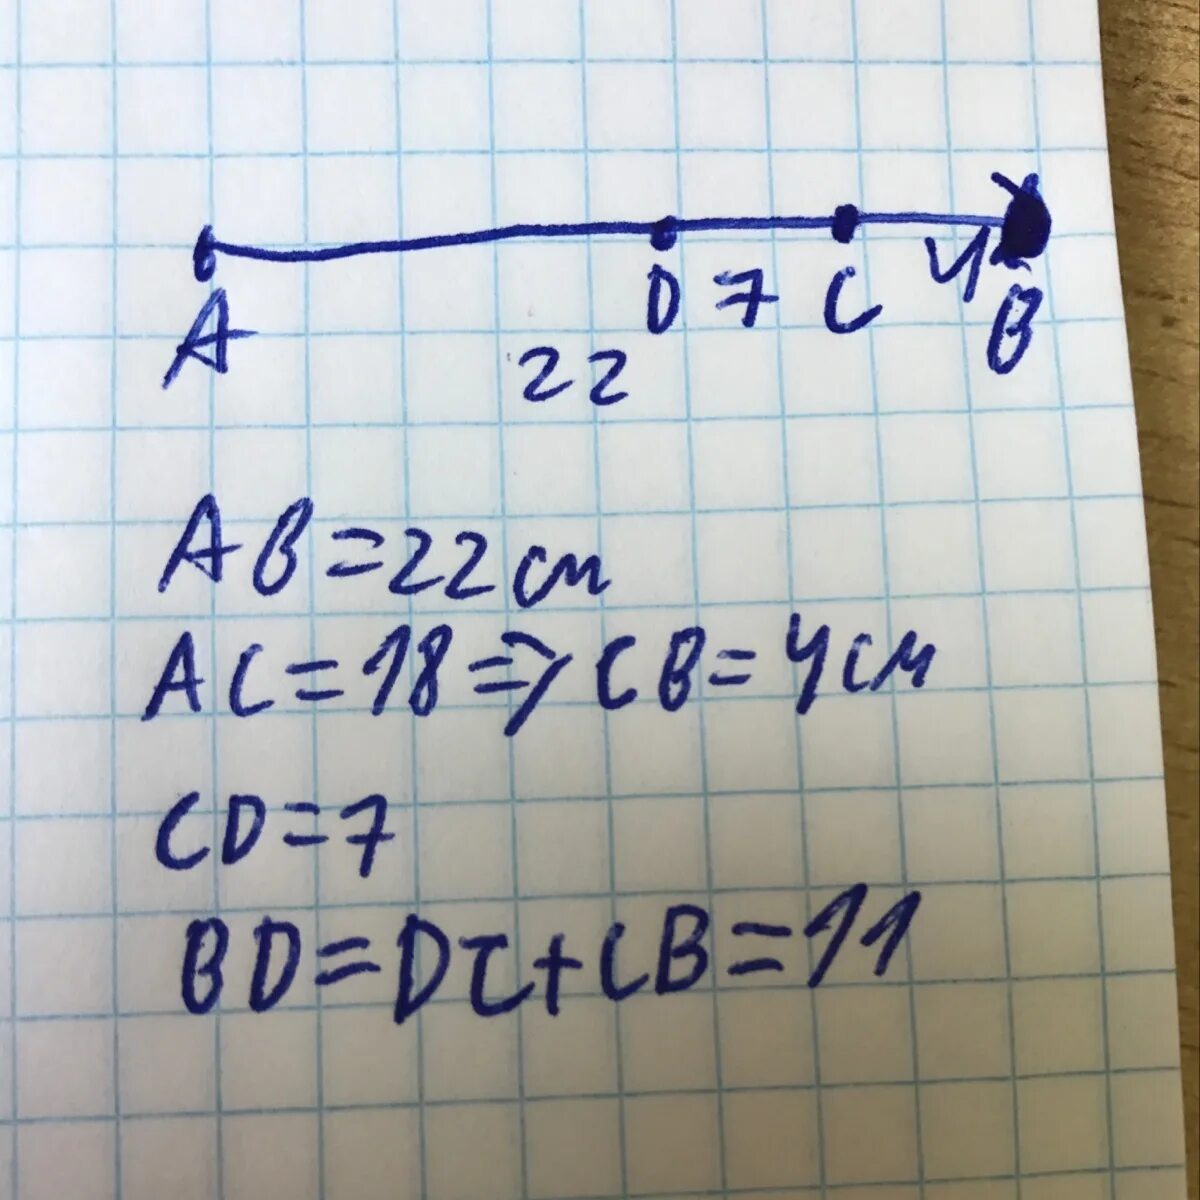 A D 7 C 4 B
22
AB=22см
AC=18=>CB=4см
CD=7
BD=DC+CB=11